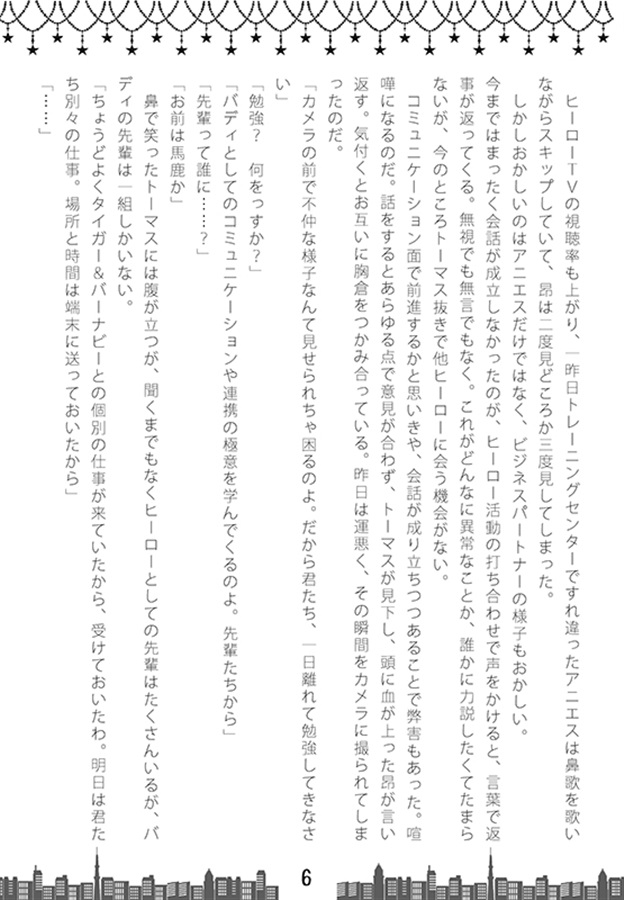 ヒーローＴＶの視聴率も上がり、一昨日トレーニングセンターですれ違ったアニエスは鼻歌を歌い
ながらスキップしていて、昴は二度見どころか三度見してしまった。
　しかしおかしいのはアニエスだけではなく、ビジネスパートナーの様子もおかしい。
今まではまったく会話が成立しなかったのが、ヒーロー活動の打ち合わせで声をかけると、言葉で返
事が返ってくる。無視でも無言でもなく。これがどんなに異常なことか、誰かに力説したくてたまら
ないが、今のところトーマス抜きで他ヒーローに会う機会がない。
　コミュニケーション面で前進するかと思いきや、会話が成り立ちつつあることで弊害もあった。喧
嘩になるのだ。話をするとあらゆる点で意見が合わず、トーマスが見下し、頭に血が上った昴が言い
返す。気付くとお互いに胸倉をつかみ合っている。昨日は運悪く、その瞬間をカメラに撮られてしま
ったのだ。
「カメラの前で不仲な様子なんて見せられちゃ困るのよ。だから君たち、一日離れて勉強してきなさ
い」
「勉強？　何をっすか？」
「バディとしてのコミュニケーションや連携の極意を学んでくるのよ。先輩たちから」
「先輩って誰に……？」
「お前は馬鹿か」
　鼻で笑ったトーマスには腹が立つが、聞くまでもなくヒーローとしての先輩はたくさんいるが、バ
ディの先輩は一組しかいない。
「ちょうどよくタイガー＆バーナビーとの個別の仕事が来ていたから、受けておいたわ。明日は君た
ち別々の仕事。場所と時間は端末に送っておいたから」
「……」
6